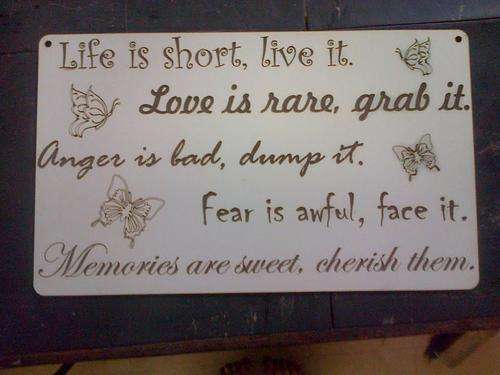 Life is short, live it.
Love is rare, grab it.
Anger is bad, dump it.
Fear is awful, face it.
Memories are sweet, cherish them.